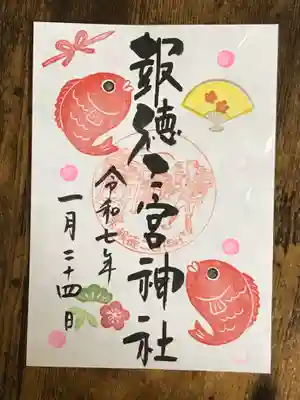 報徳二宮神社
令和七年
一月二十四日